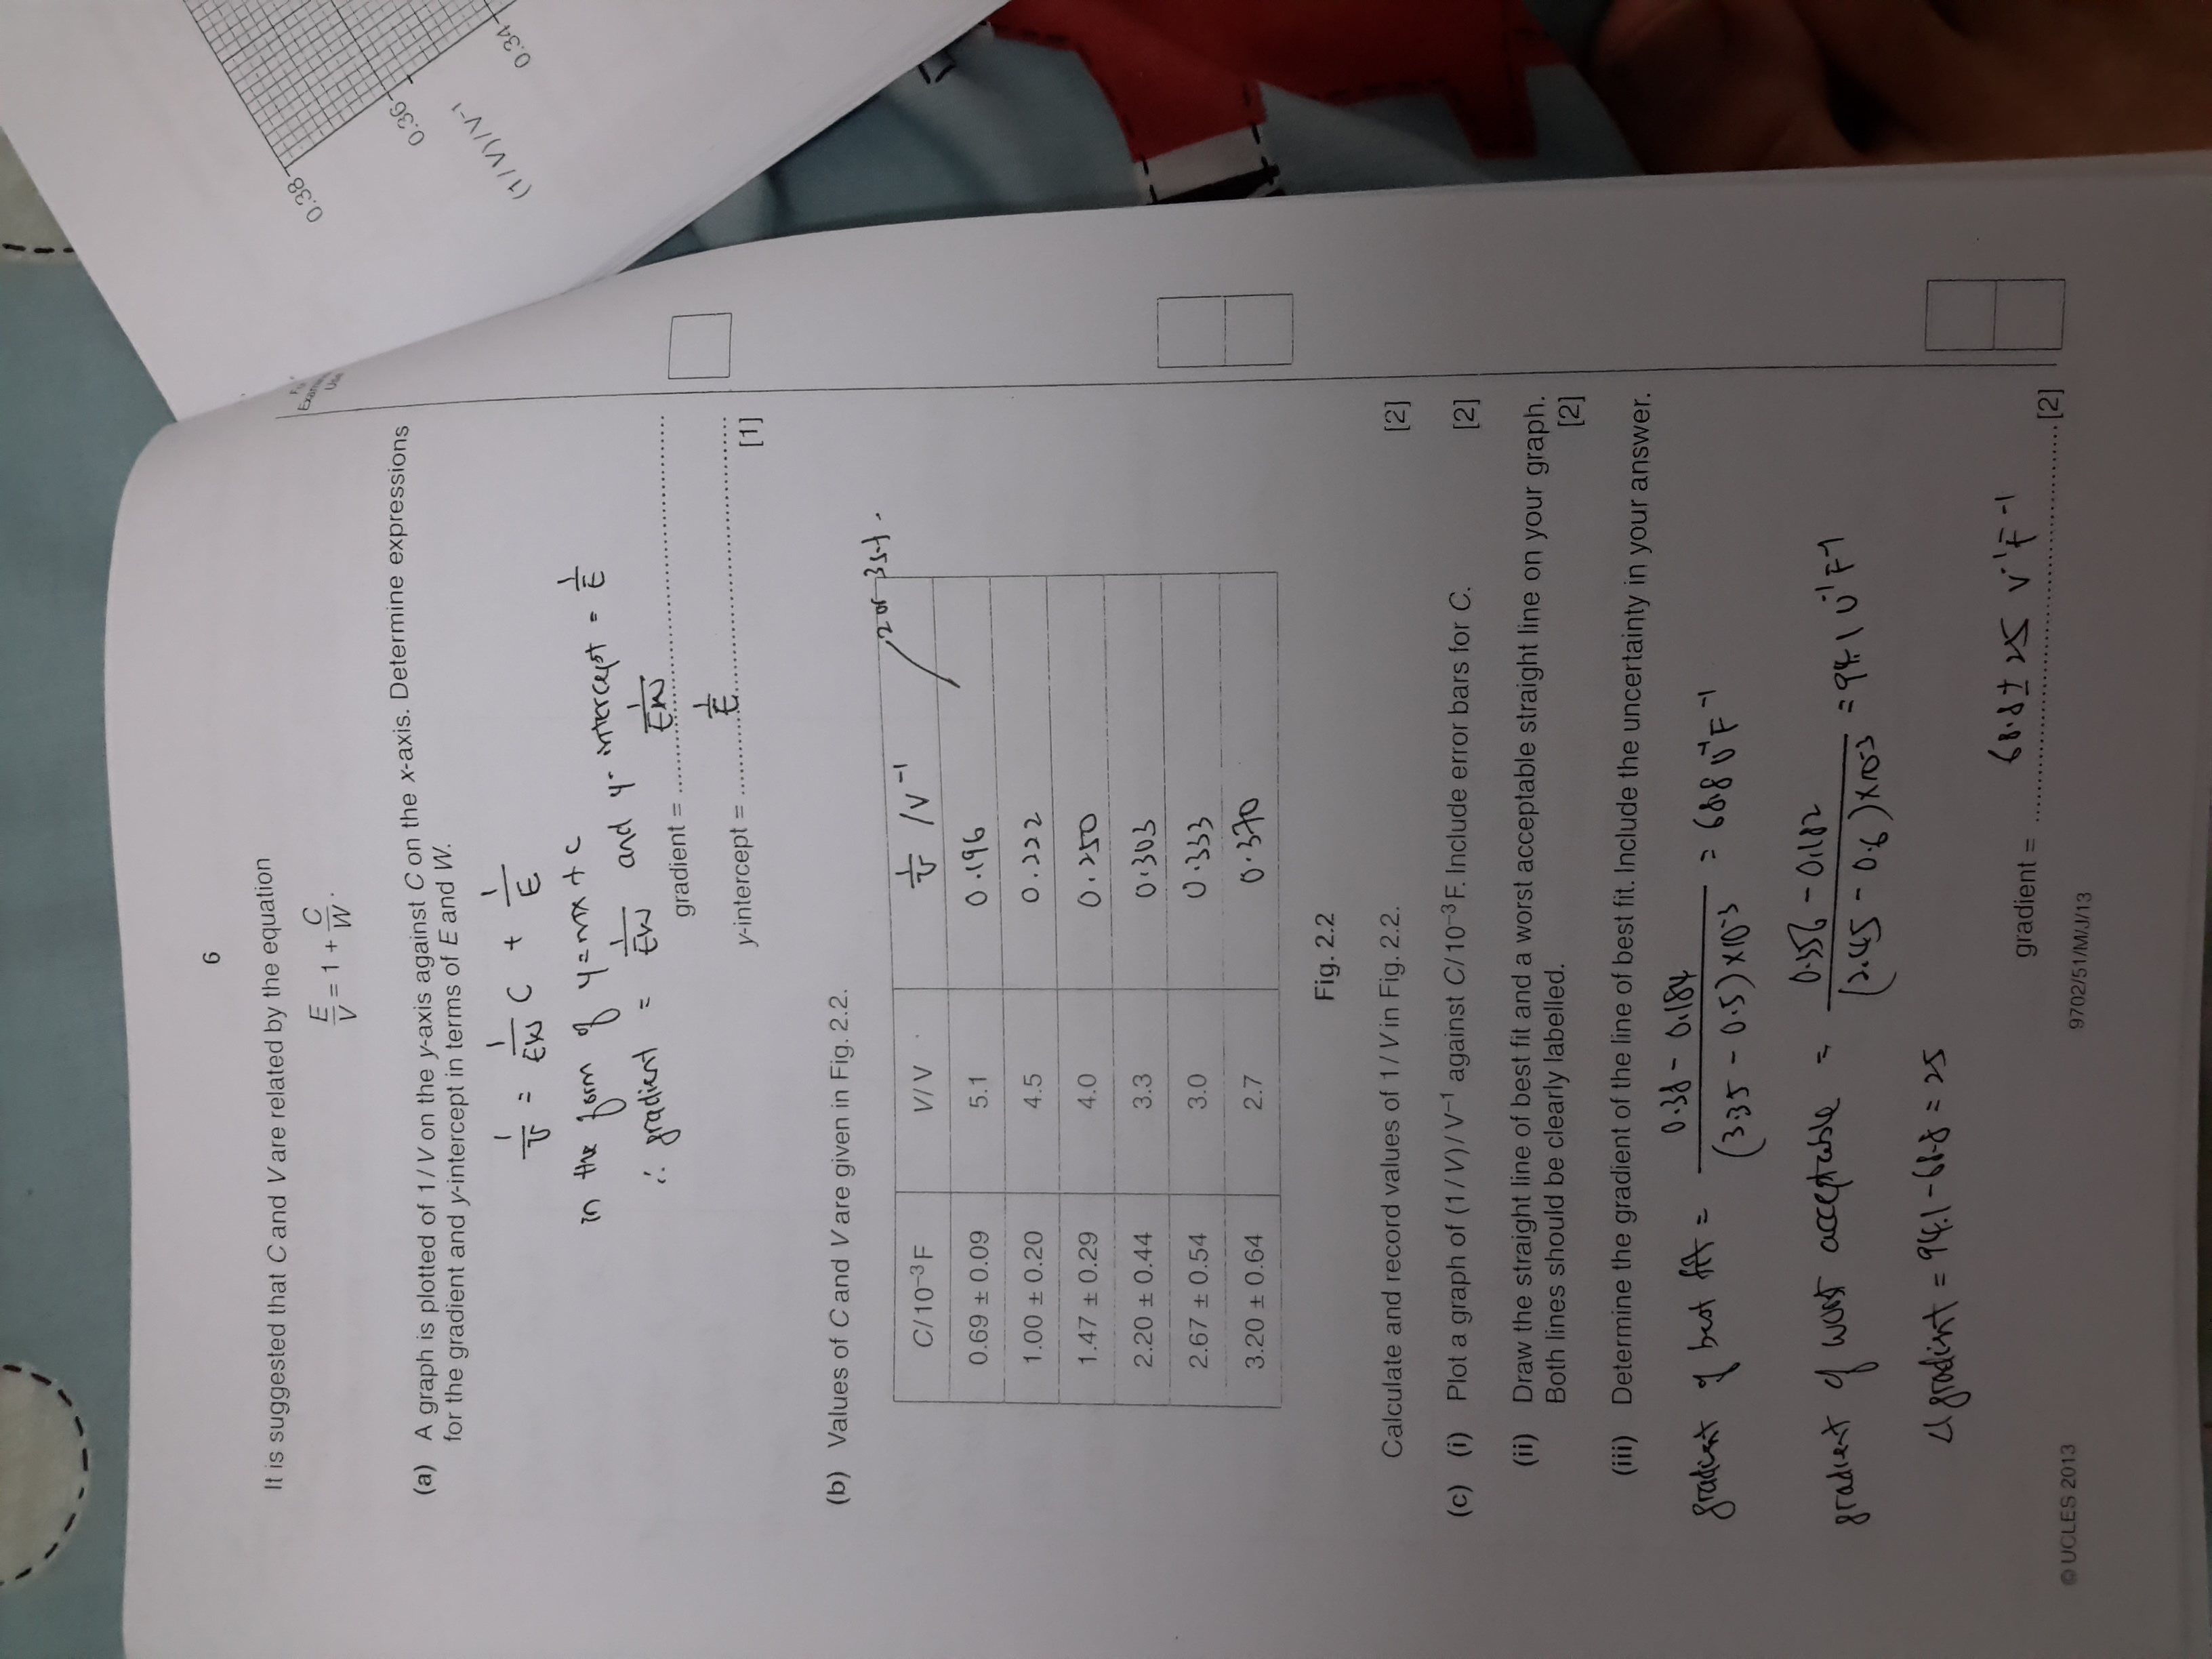 6
It is suggested that C and V are related by the equation
E/V = 1 + C/W.
(a) A graph is plotted of 1/V on the y-axis against C on the x-axis. Determine expressions
for the gradient and y-intercept in terms of E and W.
1/V = 1/EW C + 1/E
in the form of y=mx+c
∴ gradient = 1/EW and y-intercept = 1/E
gradient = 1/EW
y-intercept = 1/E
[1]
(b) Values of C and V are given in Fig. 2.2.
2 or 3 s.f.
C/10⁻³F V/V 1/V /V⁻¹
0.69 ± 0.09 5.1 0.196
1.00 ± 0.20 4.5 0.222
1.47 ± 0.29 4.0 0.250
2.20 ± 0.44 3.3 0.303
2.67 ± 0.54 3.0 0.333
3.20 ± 0.64 2.7 0.370
Fig. 2.2
Calculate and record values of 1/V in Fig. 2.2. [2]
(c) (i) Plot a graph of (1/V)/V⁻¹ against C/10⁻³F. Include error bars for C. [2]
(ii) Draw the straight line of best fit and a worst acceptable straight line on your graph.
Both lines should be clearly labelled. [2]
(iii) Determine the gradient of the line of best fit. Include the uncertainty in your answer.
gradient of best fit = 0.38 - 0.184 / (3.35 - 0.5)×10⁻³ = 68.8 V⁻¹F⁻¹
gradient of worst acceptable = 0.356 - 0.182 / (2.45 - 0.6)×10⁻³ = 94.1 V⁻¹F⁻¹
Δgradient = 94.1-68.8 = 25
gradient = 68.8 ± 25 V⁻¹F⁻¹ [2]
© UCLES 2013
9702/51/M/J/13
0.38
0.36
(1/V)/V⁻¹
0.34